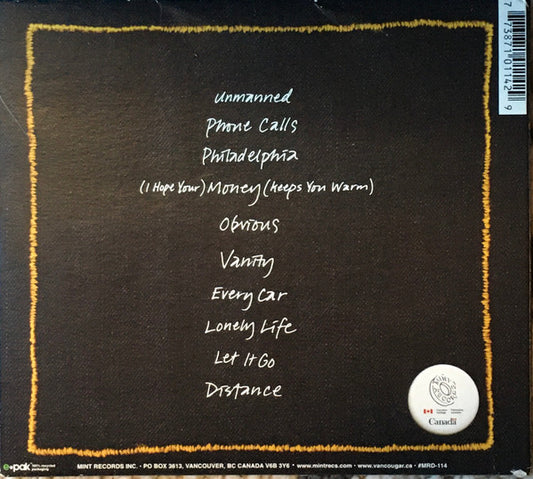 7 73871 01142 9
unmanned
Phone Calls
Philadelphia
(I Hope Your) Money (Keeps You Warm)
Obvious
Vanity
Every Car
Lonely Life
Let It Go
Distance
MINT RECORDS
Canada
e•pak 100% recycled packaging
MINT RECORDS INC. • PO BOX 3613, VANCOUVER, BC CANADA V6B 3Y6 • www.mintrecs.com • www.vancougar.ca • #MRD-114